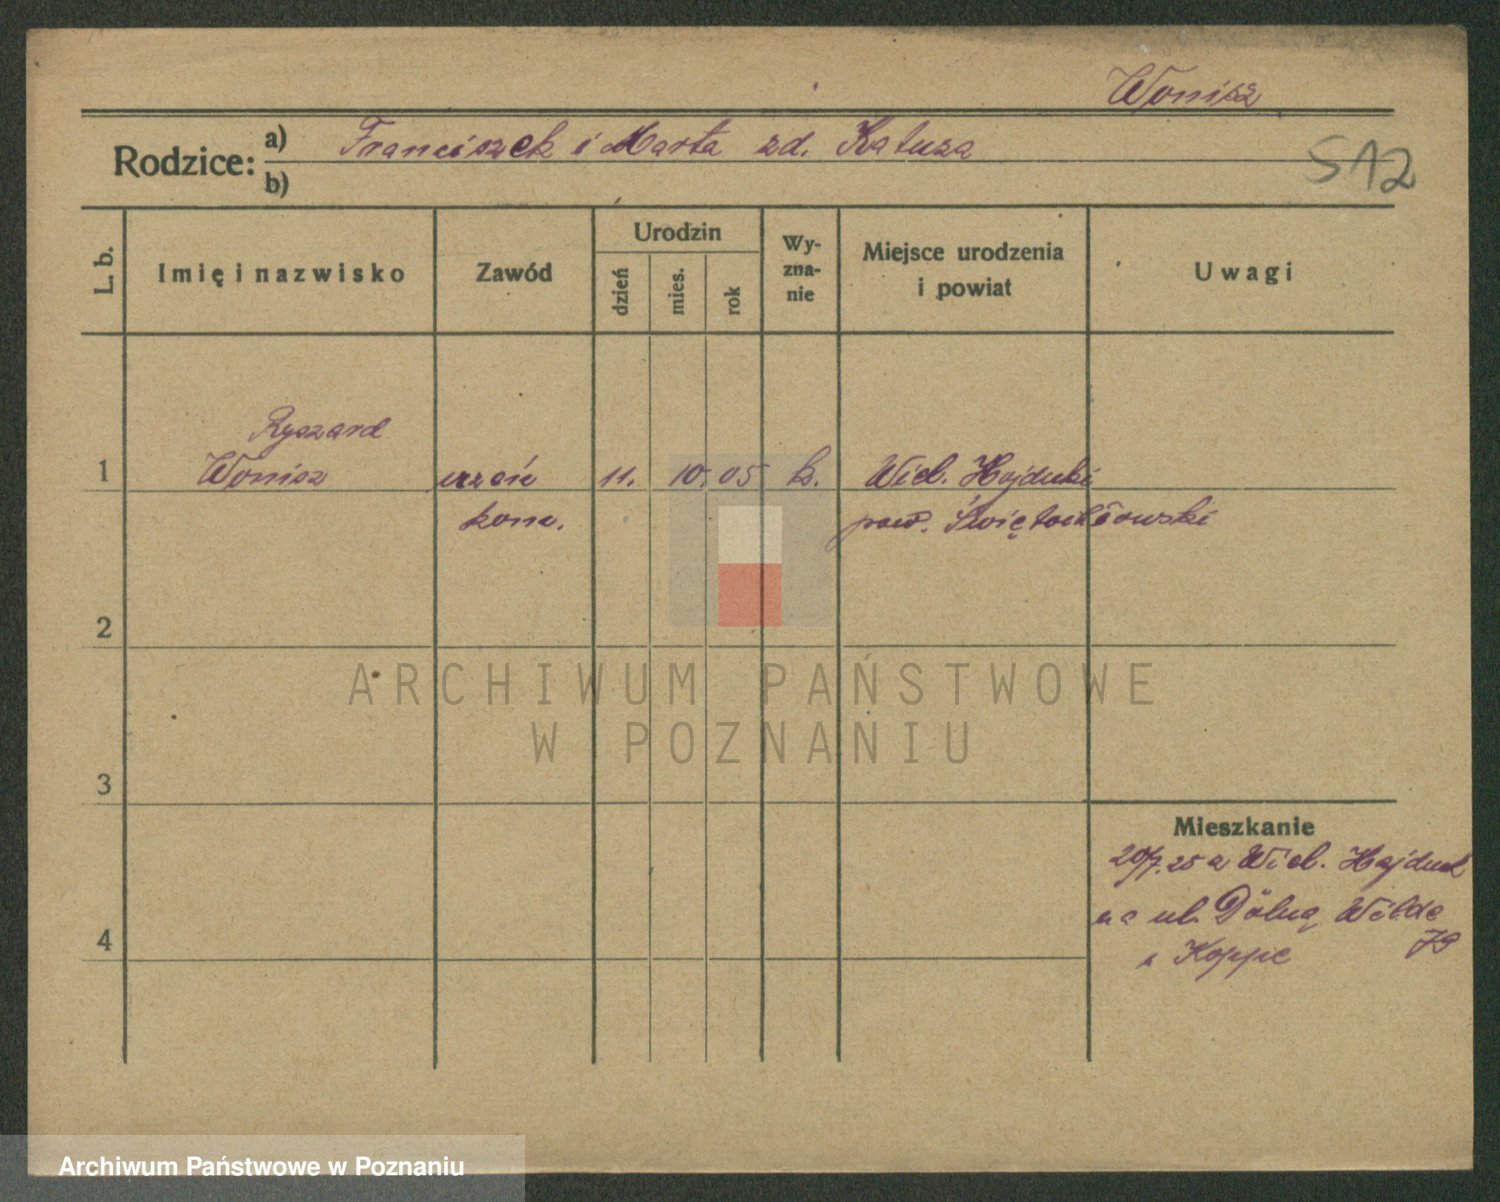 Wonisz
Rodzice: a) Franciszek i Marta zd. Katuza
b)
512
L. b.
Imię i nazwisko
Zawód
Urodzin
dzień
mies.
rok
Wy-
zna-
nie
Miejsce urodzenia
i powiat
Uwagi
Ryszard
1 Wonisz 11. 10. 05 k. Wiel. Hajduki
pow. Świętochłowski
2
ARCHIWUM PAŃSTWOWE
W POZNANIU
3
Mieszkanie
20/7. 25 z Wiel. Hajduk
na ul. Dolną Wilde
79
4
u Koppe
Archiwum Państwowe w Poznaniu